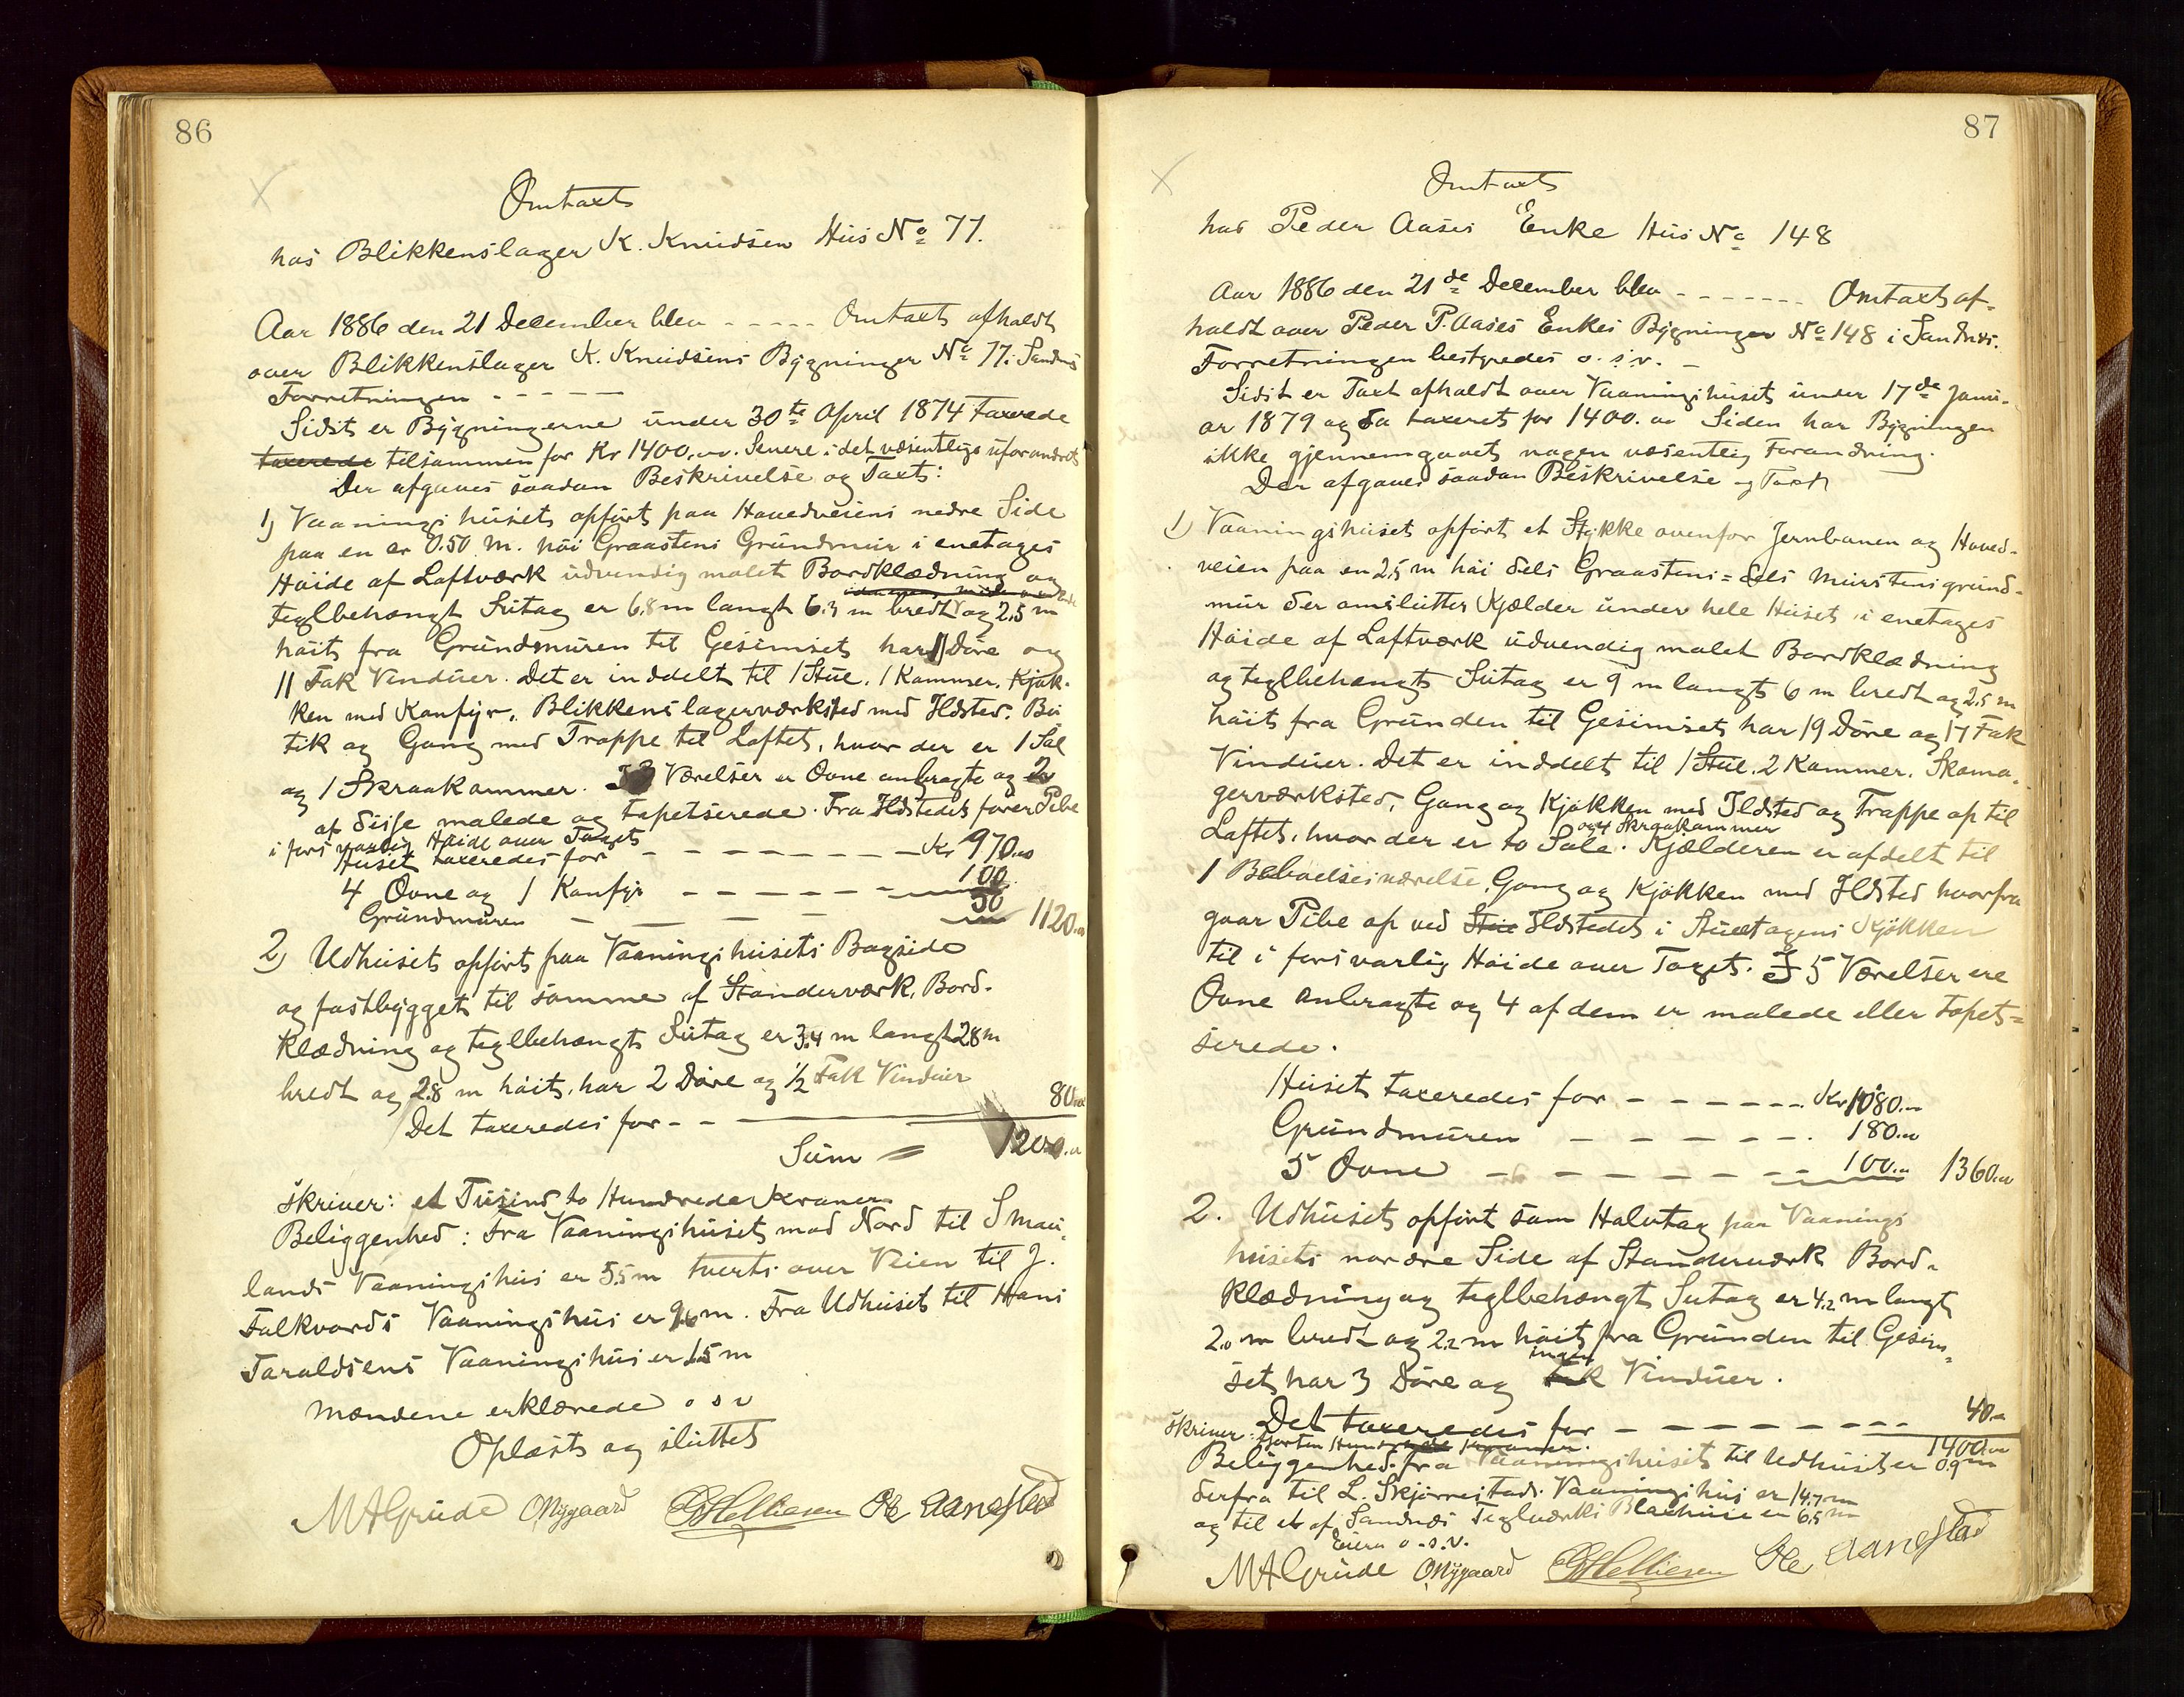 86
Omtaxt
hos Blikkenslager K. Knudsen Hus No 77.
Aar 1886 den 21 December blev - - - - - Omtaxt afholdt
over Blikkenslager K. Knudsens Bygninger No 77 i Sandnes
Forretningen - - - - -
Sidst er Bygningerne under 30te April 1874 taxerede
taxerede tilsammen for Kr 1400.00. Senere i det væsentlige uforandret
Der afgaves saadan Beskrivelse og Taxt:
1) Vaaningshuset opført paa Hovedveiens nedre Side
paa en er 0.50 m. høi Graastens Grundmur i enetages
Høide af Laftværk udvendig malet Bordklædning og
teglbehængt Sutag er 6.8 m langt 6.3 m bredt og 2,5 m
høit fra Grundmuren til Gesimset har 11 Døre og
11 Fak Vinduer. Det er inddelt til 1 Stue, 1 Kammer, Kjøk-
ken med Komfyr, Blikkenslagerværksted med Ildsted, Bu
tik og Gang med Trappe til Loftet, hvor der er 1 Sal
og 1 Skraakammer. I 3 Værelser er Ovne anbragte og 2
af disse malede og tapetserede. Fra Ildstedet fører Pibe
i forsvarlig Høide over Taget
Huset taxeredes for - - - - - - - Kr 970.00
4 Ovne og 1 Komfyr - - - - - - 100
Grundmuren - - - - 50 1120.00
2) Udhuset opført paa Vaaningshusets Bagside
og fastbygget til samme af Standerværk, Bord-
klædning og teglbehængt Sutag er 3.4 m langt 2.8 m
bredt og 2.8 m høit, har 2 Døre og 1/2 Fak Vinduer
Det taxeredes for - - 80.00
Sum = 1200.00
skriver: et Tusind to Hundrede Kroner
Beliggenhed: Fra Vaaningshuset mod Nord til Smau-
lands Vaaningshus er 5.5 m tverts over Veien til J.
Falkvards Vaaningshus er 9.6 m. Fra Udhuset til Hans
Taraldsens Vaaningshus er 1.5 m
Mændene erklærede o s v
Oplæst og sluttet
MAGrude ONygaard GHelliesen Ole Aanestad
87
Omtaxt
hos Peder Aases Enke Hus No 148
Aar 1886 den 21de December blev - - - - - - - Omtaxt af-
holdt over Peder P. Aases Enkes Bygninger No 148 i Sandnes.
Forretningen bestyredes o. s. v. -
Sidst er Taxt afholdt over Vaaningshuset under 17de Janu-
ar 1879 og da taxeret for 1400.00 Siden har Bygningen
ikke gjennemgaaet nogen væsentlig Forandring.
Der afgaves saadan Beskrivelse og Taxt
1) Vaaningshuset opført et Stykke ovenfor Jernbanen og Hoved-
veien paa en 2.5 m høi dels Graastens= dels Murstensgrund-
mur der omslutter Kjælder under hele Huset, i enetages
Høide af Laftværk udvendig malet Bordklædning
og teglbehængt Sutag er 9 m langt 6 m bredt og 2.5 m
høit fra Grunden til Gesimset har 19 Døre og 17 Fak
Vinduer. Det er inddelt til 1 Stue, 2 Kammer, Skoma-
gerværksted, Gang og Kjøkken med Ildsted og Trappe op til
Loftet, hvor der er to Sale og 4 Skraakammer. Kjælderen er afdelt til
1 Beboelsesværelse, Gang og Kjøkken med Ildsted hvorfra
gaar Pibe op ved Stue Ildstedet i Stuetagens Kjøkken
til i forsvarlig Høide over Taget. I 5 Værelser ere
Ovne anbragte og 4 af dem er malede eller tapet=
serede.
Huset taxeredes for - - - - - - Kr 1080.00
Grundmuren - - - - - - 180.00
5 Ovne - - - - - - - - 100.00 1360.00
2. Udhuset opført som Halvtag paa Vaanings
husets nordre Side af Standerværk Bord-
klædning og teglbehængt Sutag er 4.2 m langt
2.0 m bredt og 2.2 m høit fra Grunden til Gesim-
set har 3 Døre og ingen Fak Vinduer.
Det taxeredes for - - - - - - - - 40.00
skriver: fjorten Hundrede Kroner. 1400.00
Beliggenhed fra Vaaningshuset til Udhuset er 0.9 m
derfra til L. Skjørrestads Vaaningshus er 14.7 m
og til et af Sandnes Teglværks Blaehuse er 6.5 m
Eieren o. s. v.
MAGrude ONygaard GHelliesen Ole Aanestad